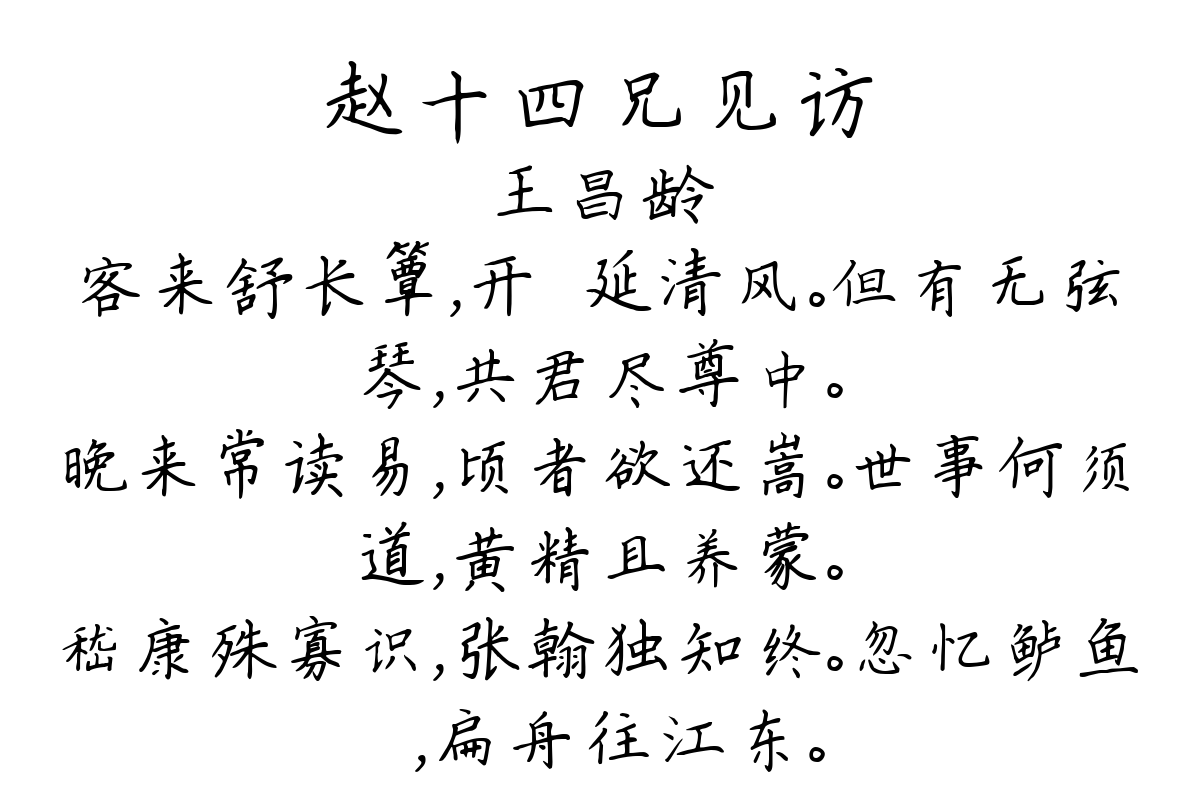 赵十四兄见访
王昌龄
客来舒长簟,开 延清风。但有无弦
琴,共君尽尊中。
晚来常读易,顷者欲还嵩。世事何须
道,黄精且养蒙。
嵇康殊寡识,张翰独知终。忽忆鲈鱼
,扁舟往江东。